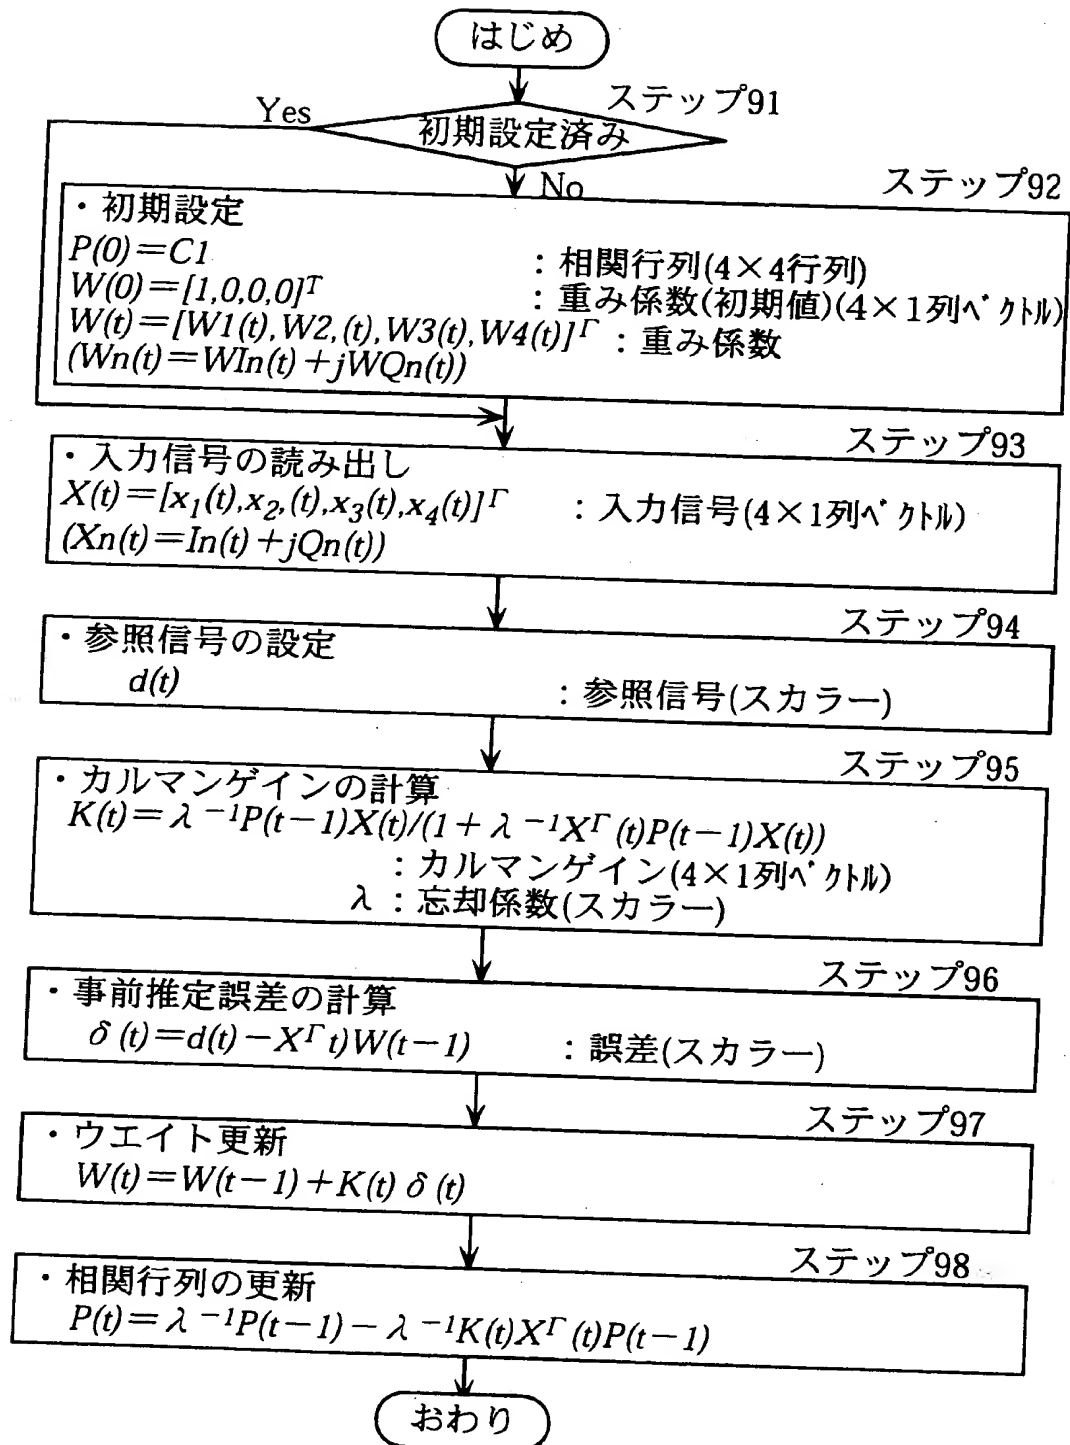 はじめ
ステップ91
Yes
初期設定済み
No
ステップ92
・初期設定
P(0)=C1 :相関行列(4×4行列)
W(0)=[1,0,0,0]^T :重み係数(初期値)(4×1列ベクトル)
W(t)=[W1(t),W2,(t),W3(t),W4(t)]^Γ :重み係数
(Wn(t)=WIn(t)+jWQn(t))
ステップ93
・入力信号の読み出し
X(t)=[x₁(t),x₂,(t),x₃(t),x₄(t)]^Γ :入力信号(4×1列ベクトル)
(Xn(t)=In(t)+jQn(t))
ステップ94
・参照信号の設定
d(t) :参照信号(スカラー)
ステップ95
・カルマンゲインの計算
K(t)=λ⁻¹P(t−1)X(t)/(1+λ⁻¹X^Γ(t)P(t−1)X(t))
:カルマンゲイン(4×1列ベクトル)
λ:忘却係数(スカラー)
ステップ96
・事前推定誤差の計算
δ(t)=d(t)−X^Γt)W(t−1) :誤差(スカラー)
ステップ97
・ウエイト更新
W(t)=W(t−1)+K(t)δ(t)
ステップ98
・相関行列の更新
P(t)=λ⁻¹P(t−1)−λ⁻¹K(t)X^Γ(t)P(t−1)
おわり